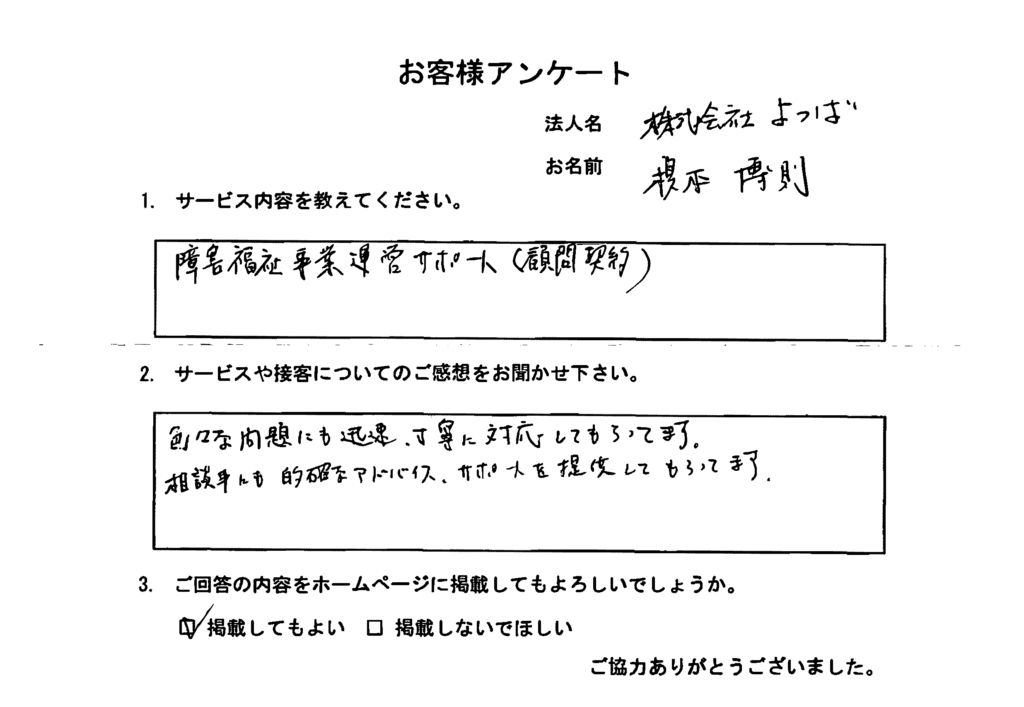 お客様アンケート
法人名 株式会社 よつば
お名前 根本 博則
1. サービス内容を教えてください。
障害福祉事業運営サポート(顧問契約)
2. サービスや接客についてのご感想をお聞かせ下さい。
色々な問題にも迅速、丁寧に対応してもらってます。
相談事にも的確なアドバイス、サポートを提供してもらってます。
3. ご回答の内容をホームページに掲載してもよろしいでしょうか。
☑ 掲載してもよい □ 掲載しないでほしい
ご協力ありがとうございました。